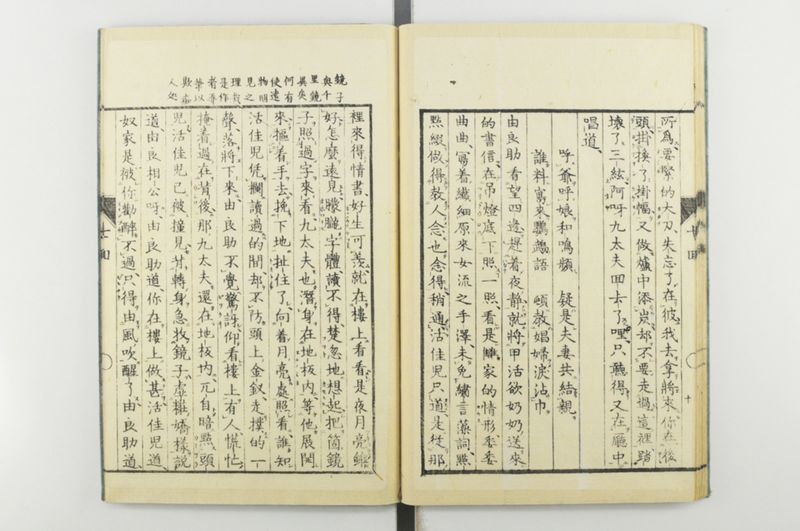 所為要緊的大刀朱忘了在彼我去拿將來你在後
頭掛換了掛幅又做爐中添炭却不要走過這裡踏
壞了三絃阿呀九太夫回去了哩只聽得又在廳中
唱道
呼爺呼娘和鳴頻 疑是夫妻共結親
誰料窩來鸚鵡語 頓教娼婦淚沾巾
由良助看望四邊趕着夜靜就將甲活欲奶奶送來
的書信在吊燈底下照一照看是讐家的情形委委
曲曲寫着纖細原來女流之手澤未免繡言藻詞照
點綴做得教人念也念得稍通活佳兒只道是從那
十
鏡子
與千
里鏡
異矣
何有
使遠
物明
見之
理
是作
者
筆以
欺
人処
裡來得情書好生可羨就在樓上看看是夜月亮雖
好怎麼遠見朦朧字體讀不得楚忽地想起把箇鏡
子照過字來看九太夫也潛身在地板內等他展開
來摳着手去挽下地扯住了向着月亮處照看誰知
活佳兒凭欄讀過的間却不防頭上金釵走撲的一
聲落將下來由良助不覺驚訝仰看樓上有人慌忙
掩着過在背後那九太夫還在地板內兀自暗點頭
兒活佳兒已被撞見其轉身急收鏡子虛粧嬌樣說
道由良相公呀由良助道你在樓上做甚活佳兒道
奴家是被你勸醉不過只得由風吹醒了由良助道
十四